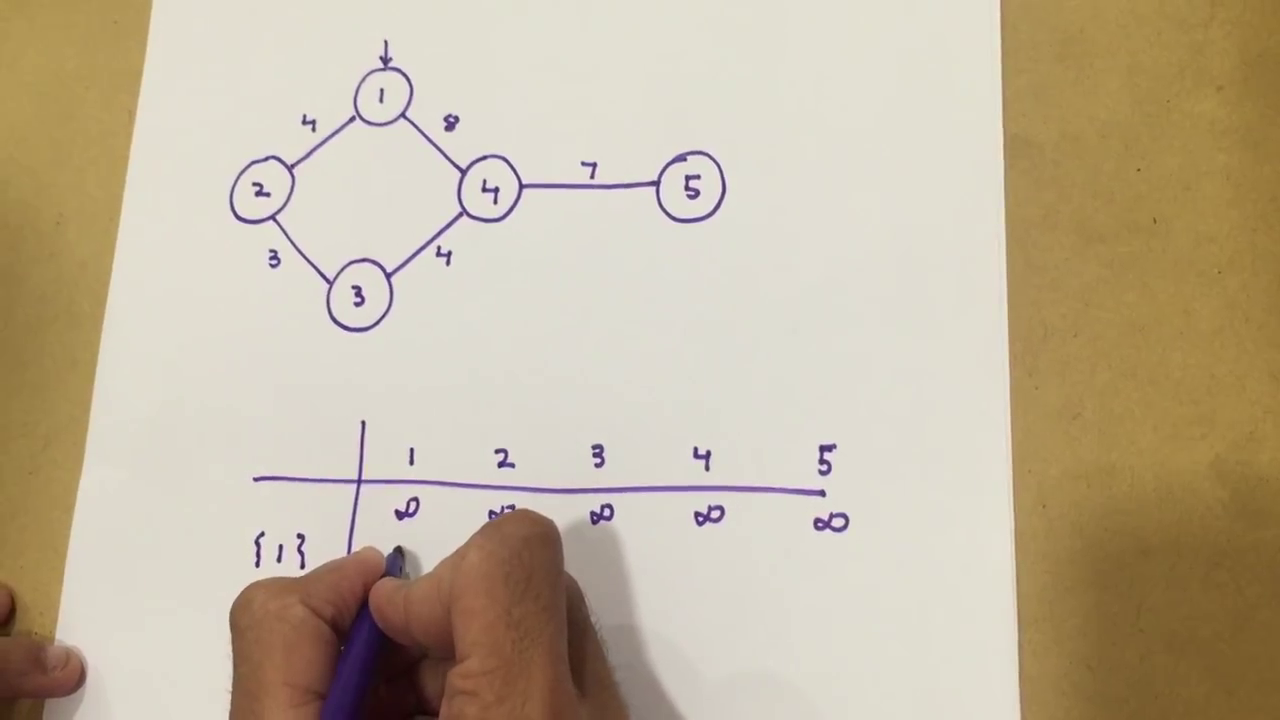 1
4 8
2 4 7 5
3 4
3
1 2 3 4 5
∞ ∞ ∞ ∞ ∞
{1}